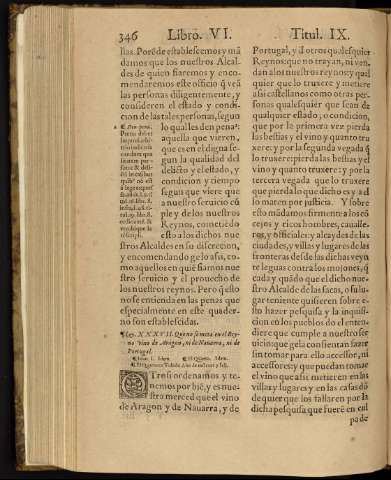 346 Libro. VI. Titul. IX.
llas. Porẽde establescemos y mã
damos que los nuestros Alcal
des de quien fiaremos y enco-
mendaremos este officio q̃ veã
las personas diligentemente, y
consideren el estado y condi-
cion de las tales personas, segun
lo qual les den penaᵃ:
aquella que vieren,
que es en el digna se-
gun la qualidad del
delicto y el estado, y
condicion y tiempo
segun que viere que
a nuestro seruicio cũ
ple y de los nuestros
Reynos, cometẽdo
esto a los dichos nue
stros Alcaldes en su discrecion,
y encomendando gelo assi, co-
mo aquellos en quiẽ fiamos nue
stro seruicio y el prouecho de
los nuestros reynos. Pero q̃ esto
no se entienda en las penas que
especialmente en este quader-
no son establescidas.
a ¶ Den pena.
¶ Ley. XXXVII. Que no se meta en el Rey-
no vino de Aragon, ni de Nauarra, ni de
Portugal.
OTrosi ordenamos y te-
nemos por biẽ, y es nue-
stra merced que el vino
de Aragon y de Nauarra, y de
Portugal, y d̃ otros qualesquier
Reynos: que no trayan, ni ven-
dan a los nuestros reynos: y qual
quier que lo truxere y metiere
assi castellanos como otras per-
sonas qualesquier que sean de
qualquier estado, o condicion,
que por la primera vez pierda
las bestias y el vino y quanto tru
xere: y por la segunda vegada q̃
lo truxere pierda las bestias y el
vino y quanto truxere: y por la
tercera vegada que lo truxere
que pierda lo que dicho es y a el
lo maten por justicia. Y sobre
esto mãdamos firmente a los cõ
cejos y ricos hombres, caualle-
ros, y officiales, y alcaydes de las
ciudades, y villas y lugares de las
fronteras desde las dichas veyn
te leguas contra los mojones, q̃
cada y quãdo que el dicho nue-
stro Alcalde de las sacas, o su lu-
gar teniente quisieren sobre e-
sto hazer pesquisa y la inquisi-
cion en los pueblos do el enten-
diere que cumple a nuestro ser-
uicio: que gela consientan fazer
sin tomar para ello accessor, ni
accessores: y que puedan tomar
el vino que assi metieren en las
villas y lugares y en las casas dõ
de quier que los fallaren por la
dicha pesquisa que fuere en cul
pa de